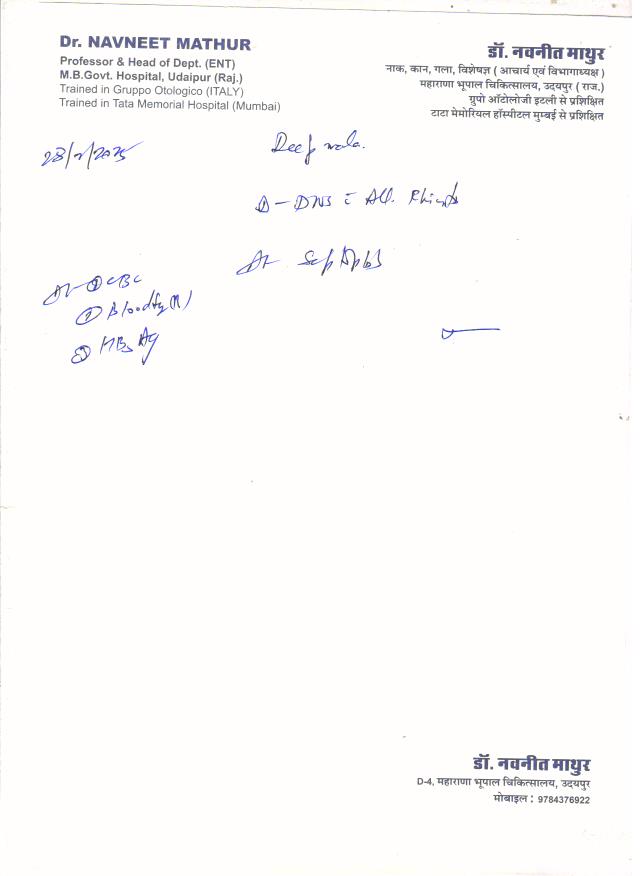 Dr. NAVNEET MATHUR
Professor & Head of Dept. (ENT)
M.B.Govt. Hospital, Udaipur (Raj.)
Trained in Gruppo Otologico (ITALY)
Trained in Tata Memorial Hospital (Mumbai)
डॉ. नवनीत माथुर
नाक, कान, गला, विशेषज्ञ ( आचार्य एवं विभागाध्यक्ष )
महाराणा भूपाल चिकित्सालय, उदयपुर ( राज.)
ग्रुपो ऑटोलोजी इटली से प्रशिक्षित
टाटा मेमोरियल हॉस्पीटल मुम्बई से प्रशिक्षित
D - DNS c All.
① CBC
②
③ HBsAg
डॉ. नवनीत माथुर
D-4, महाराणा भूपाल चिकित्सालय, उदयपुर
मोबाइल : 9784376922